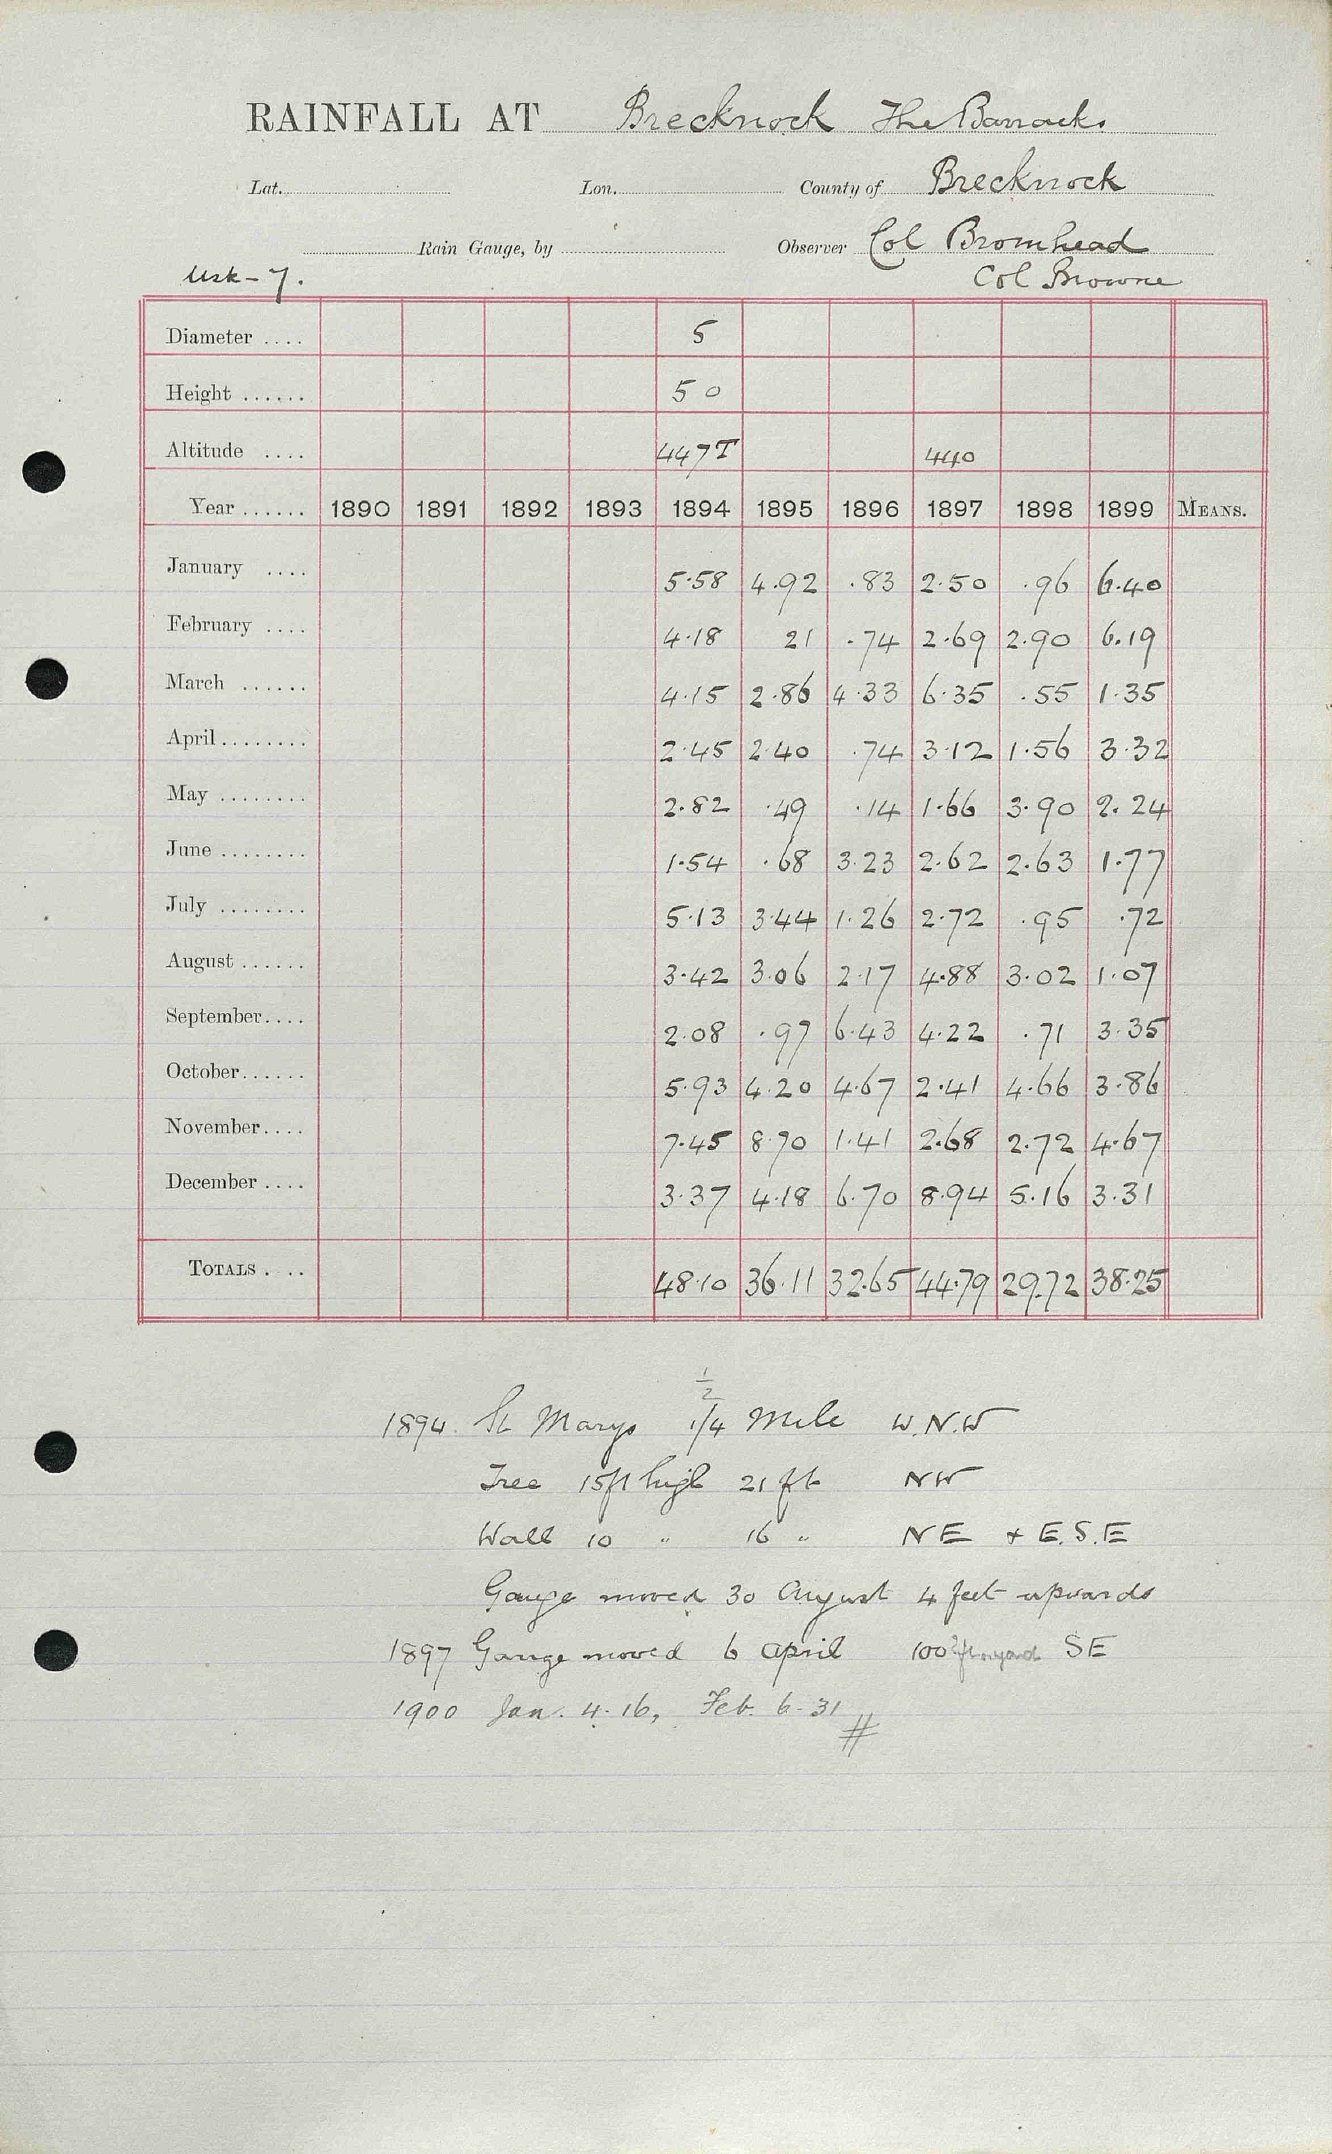 RAINFALL AT Brecknock The Barracks
Lat. Lon. County of Brecknock
Rain Gauge, by Observer Col Bromhead
Usk-7. Col Browne
Diameter .... 5
Height ...... 5 0
Altitude .... 447T 440
Year ...... 1890 1891 1892 1893 1894 1895 1896 1897 1898 1899 MEANS.
January .... 5.58 4.92 .83 2.50 .96 6.40
February .... 4.18 21 .74 2.69 2.90 6.19
March ...... 4.15 2.86 4.33 6.35 .55 1.35
April ........ 2.45 2.40 .74 3.12 1.56 3.32
May ........ 2.82 .49 .14 1.66 3.90 2.24
June ........ 1.54 .68 3.23 2.62 2.63 1.77
July ........ 5.13 3.44 1.26 2.72 .95 .72
August ...... 3.42 3.06 2.17 4.88 3.02 1.07
September.... 2.08 .97 6.43 4.22 .71 3.35
October...... 5.93 4.20 4.67 2.41 4.66 3.86
November.... 7.45 8.70 1.41 2.68 2.72 4.67
December .... 3.37 4.18 6.70 8.94 5.16 3.31
TOTALS . .. 48.10 36.11 32.65 44.79 29.72 38.25
1/2
1894. St Marys 1/4 Mile W.N.W
Tree 15ft high 21 ft NW
Wall 10 " 16 " NE + E.S.E
Gauge moved 30 August 4 feet upwards
1897 Gauge moved 6 April 100 SE
1900 Jan. 4.16, Feb. 6.31 #